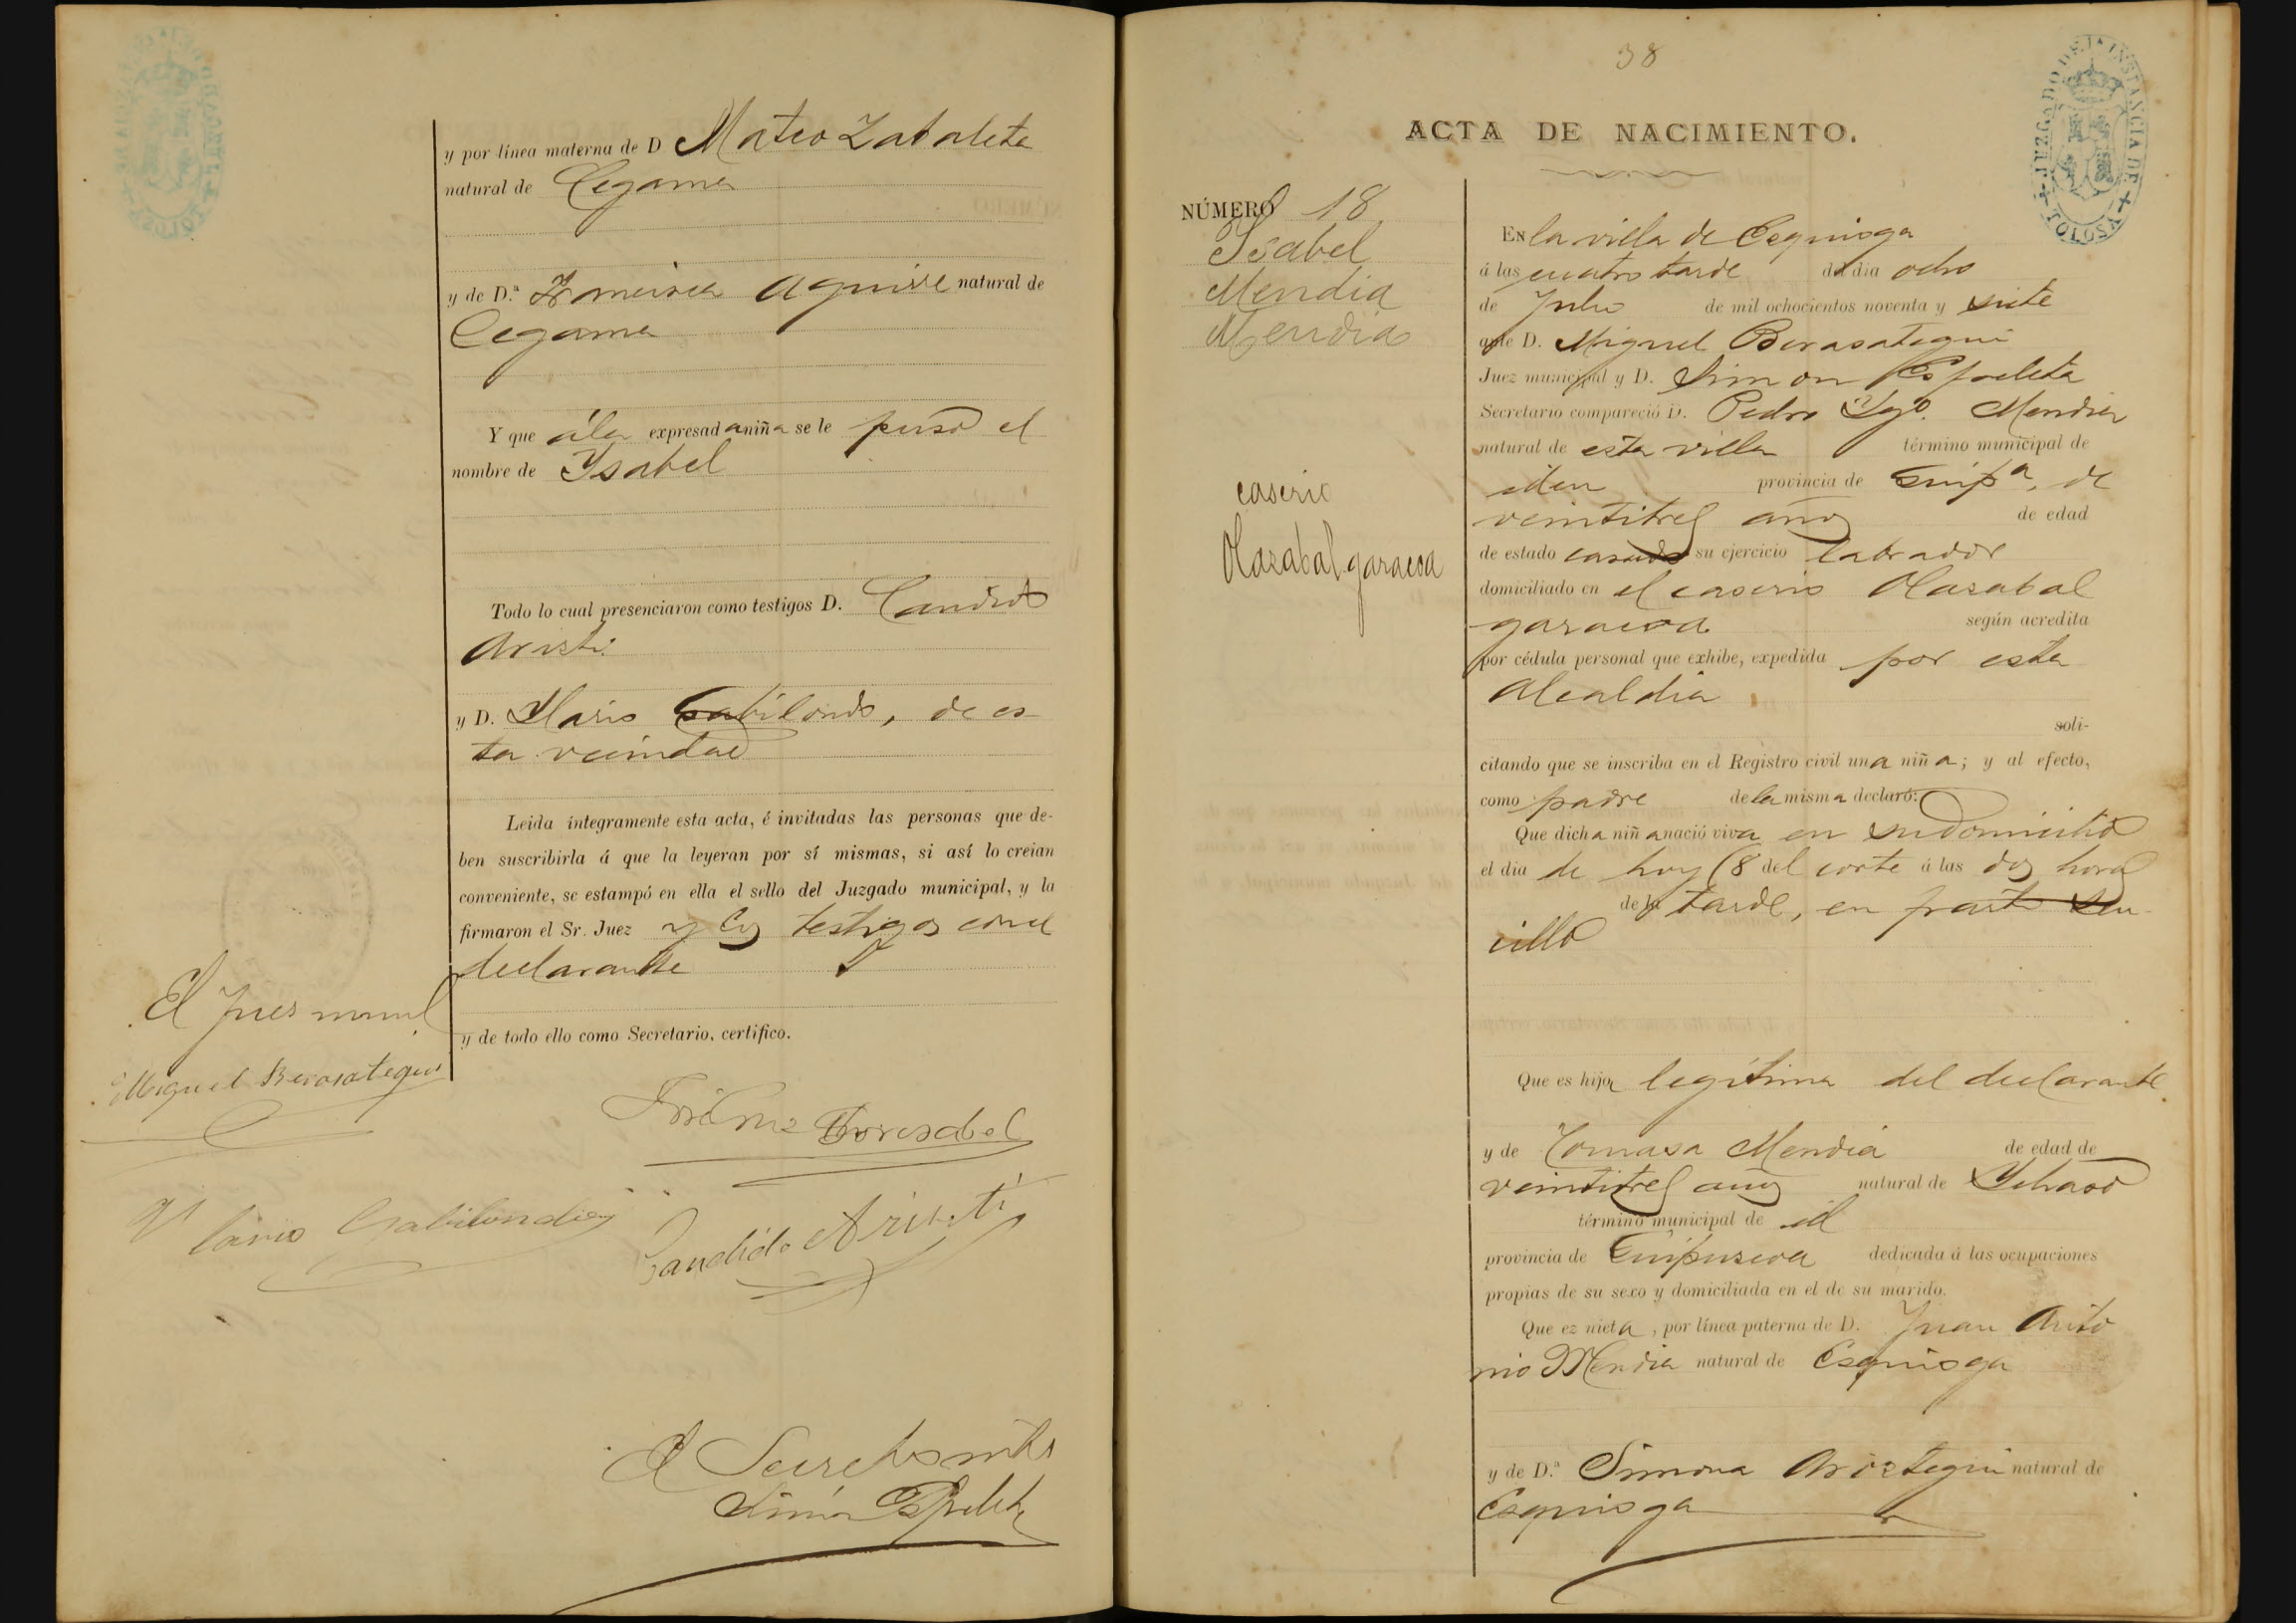 y por línea materna de D Mateo Zabaleta
natural de Cegama
y de D.ª Francisca Aguirre natural de
Cegama
Y que á la expresada niña se le puso el
nombre de Ysabel
Todo lo cual presenciaron como testigos D. Candido
Aristi
y D. Ylario Gabilondo, de es-
ta vecindad
Leida íntegramente esta acta, é invitadas las personas que de-
ben suscribirla á que la leyeran por sí mismas, si así lo creian
conveniente, se estampó en ella el sello del Juzgado municipal, y la
firmaron el Sr. Juez y los testigos con el
declarante
y de todo ello como Secretario, certifico.
El Jues munl
Miguel Berasategui
José Mª
Ylario Gabilondo
Candido Aristi
El Secretario
Simon Espeleta
38
JUZGADO DE 1ª INSTANCIA DE TOLOSA
ACTA DE NACIMIENTO.
NÚMERO 18
Ysabel
Mendia
Mendia
caserio
Olazabal garacoa
En la villa de Ezquioga
á las cuatro tarde del dia ocho
de Julio de mil ochocientos noventa y siete
ante D. Miguel Berasategui
Juez municipal y D. Simon Espeleta
Secretario compareció D. Pedro Ygº. Mendia
natural de esta villa término municipal de
idem provincia de Guipª, de
veintitres años de edad
de estado casado su ejercicio labrador
domiciliado en el caserio Olazabal
garacoa según acredita
por cédula personal que exhibe, expedida por esta
Alcaldia
soli-
citando que se inscriba en el Registro civil una niña; y al efecto,
como padre de la misma declaró:
Que dicha niña nació viva en su domicilio
el dia de hoy (8 del corte á las dos horas
de la tarde, en parto sen-
cillo
Que es hija legítima del declarante
y de Tomasa Mendia de edad de
veintitres años natural de Ychaso
término municipal de id
provincia de Guipuscoa dedicada á las ocupaciones
propias de su sexo y domiciliada en el de su marido.
Que es nieta, por línea paterna de D. Juan Anto
nio Mendia natural de Esquioga
y de D.ª Simona Aroztegui natural de
Esquioga